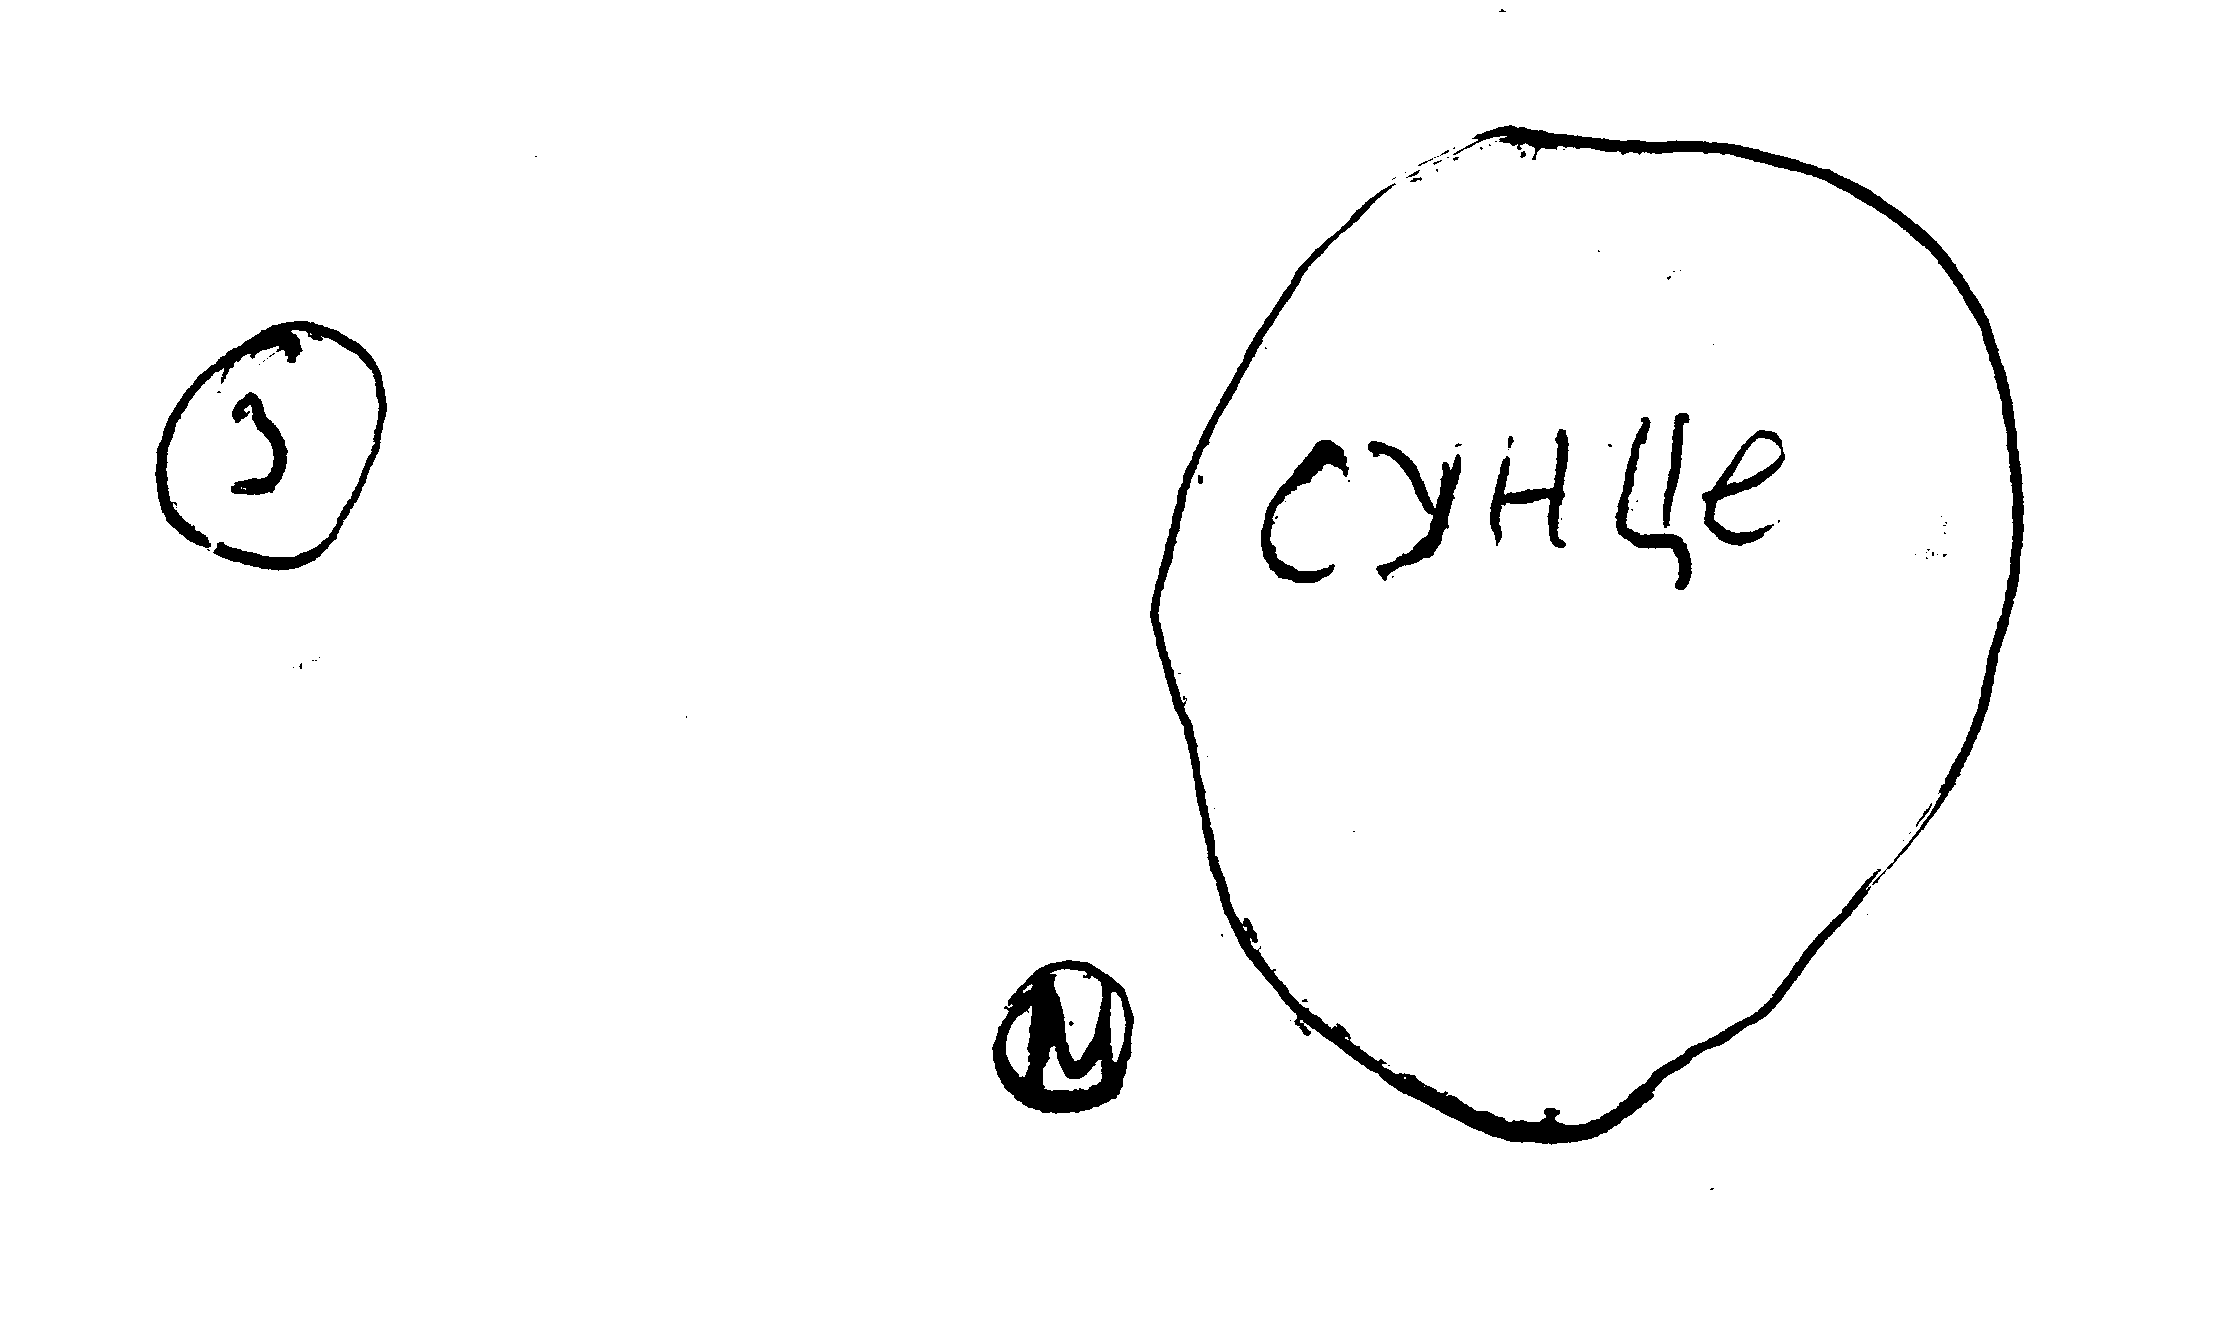 З
СУНЦе
М